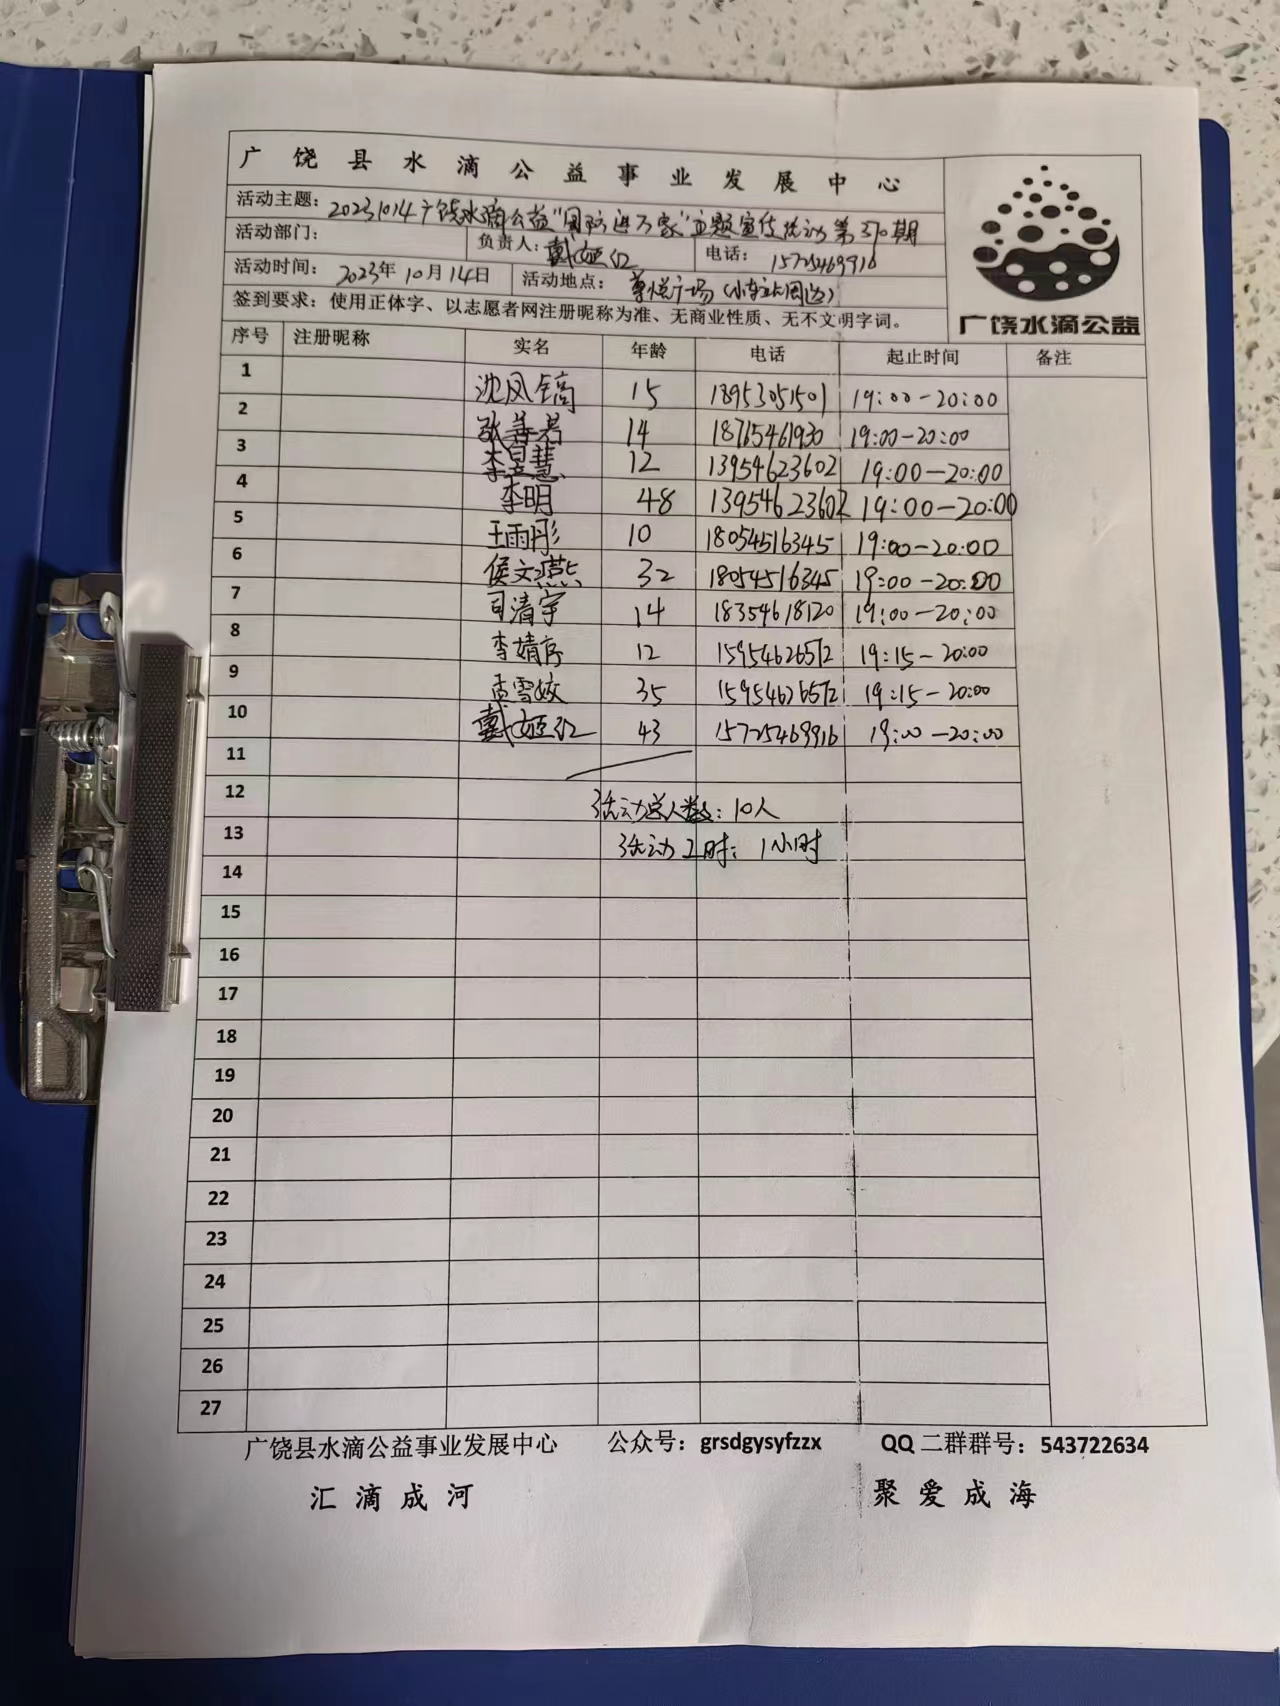 广饶县水滴公益事业发展中心
活动主题：20231014广饶水滴公益“国防进万家”主题宣传活动第370期
活动部门： 负责人：戴姬红 电话：15725469916
活动时间：2023年10月14日 活动地点：尊悦广场（小车站周边）
签到要求：使用正体字、以志愿者网注册昵称为准、无商业性质、无不文明字词。
广饶水滴公益
序号 注册昵称 实名 年龄 电话 起止时间 备注
1 沈风镐 15 18953051501 19:00-20:00
2 张善若 14 18765461930 19:00-20:00
3 李昱慧 12 13954623602 19:00-20:00
4 李明 48 13954623602 19:00-20:00
5 王雨彤 10 18054516345 19:00-20:00
6 侯文燕 32 18054516345 19:00-20:00
7 司清宇 14 18354618120 19:00-20:00
8 李婧 12 15954626572 19:15-20:00
9 孟雪姣 35 15954626572 19:15-20:00
10 戴姬红 43 15725469916 19:00-20:00
11
12 活动总人数：10人
13 活动工时：1小时
14
15
16
17
18
19
20
21
22
23
24
25
26
27
广饶县水滴公益事业发展中心 公众号：grsdgysyfzzx QQ二群群号：543722634
汇滴成河 聚爱成海